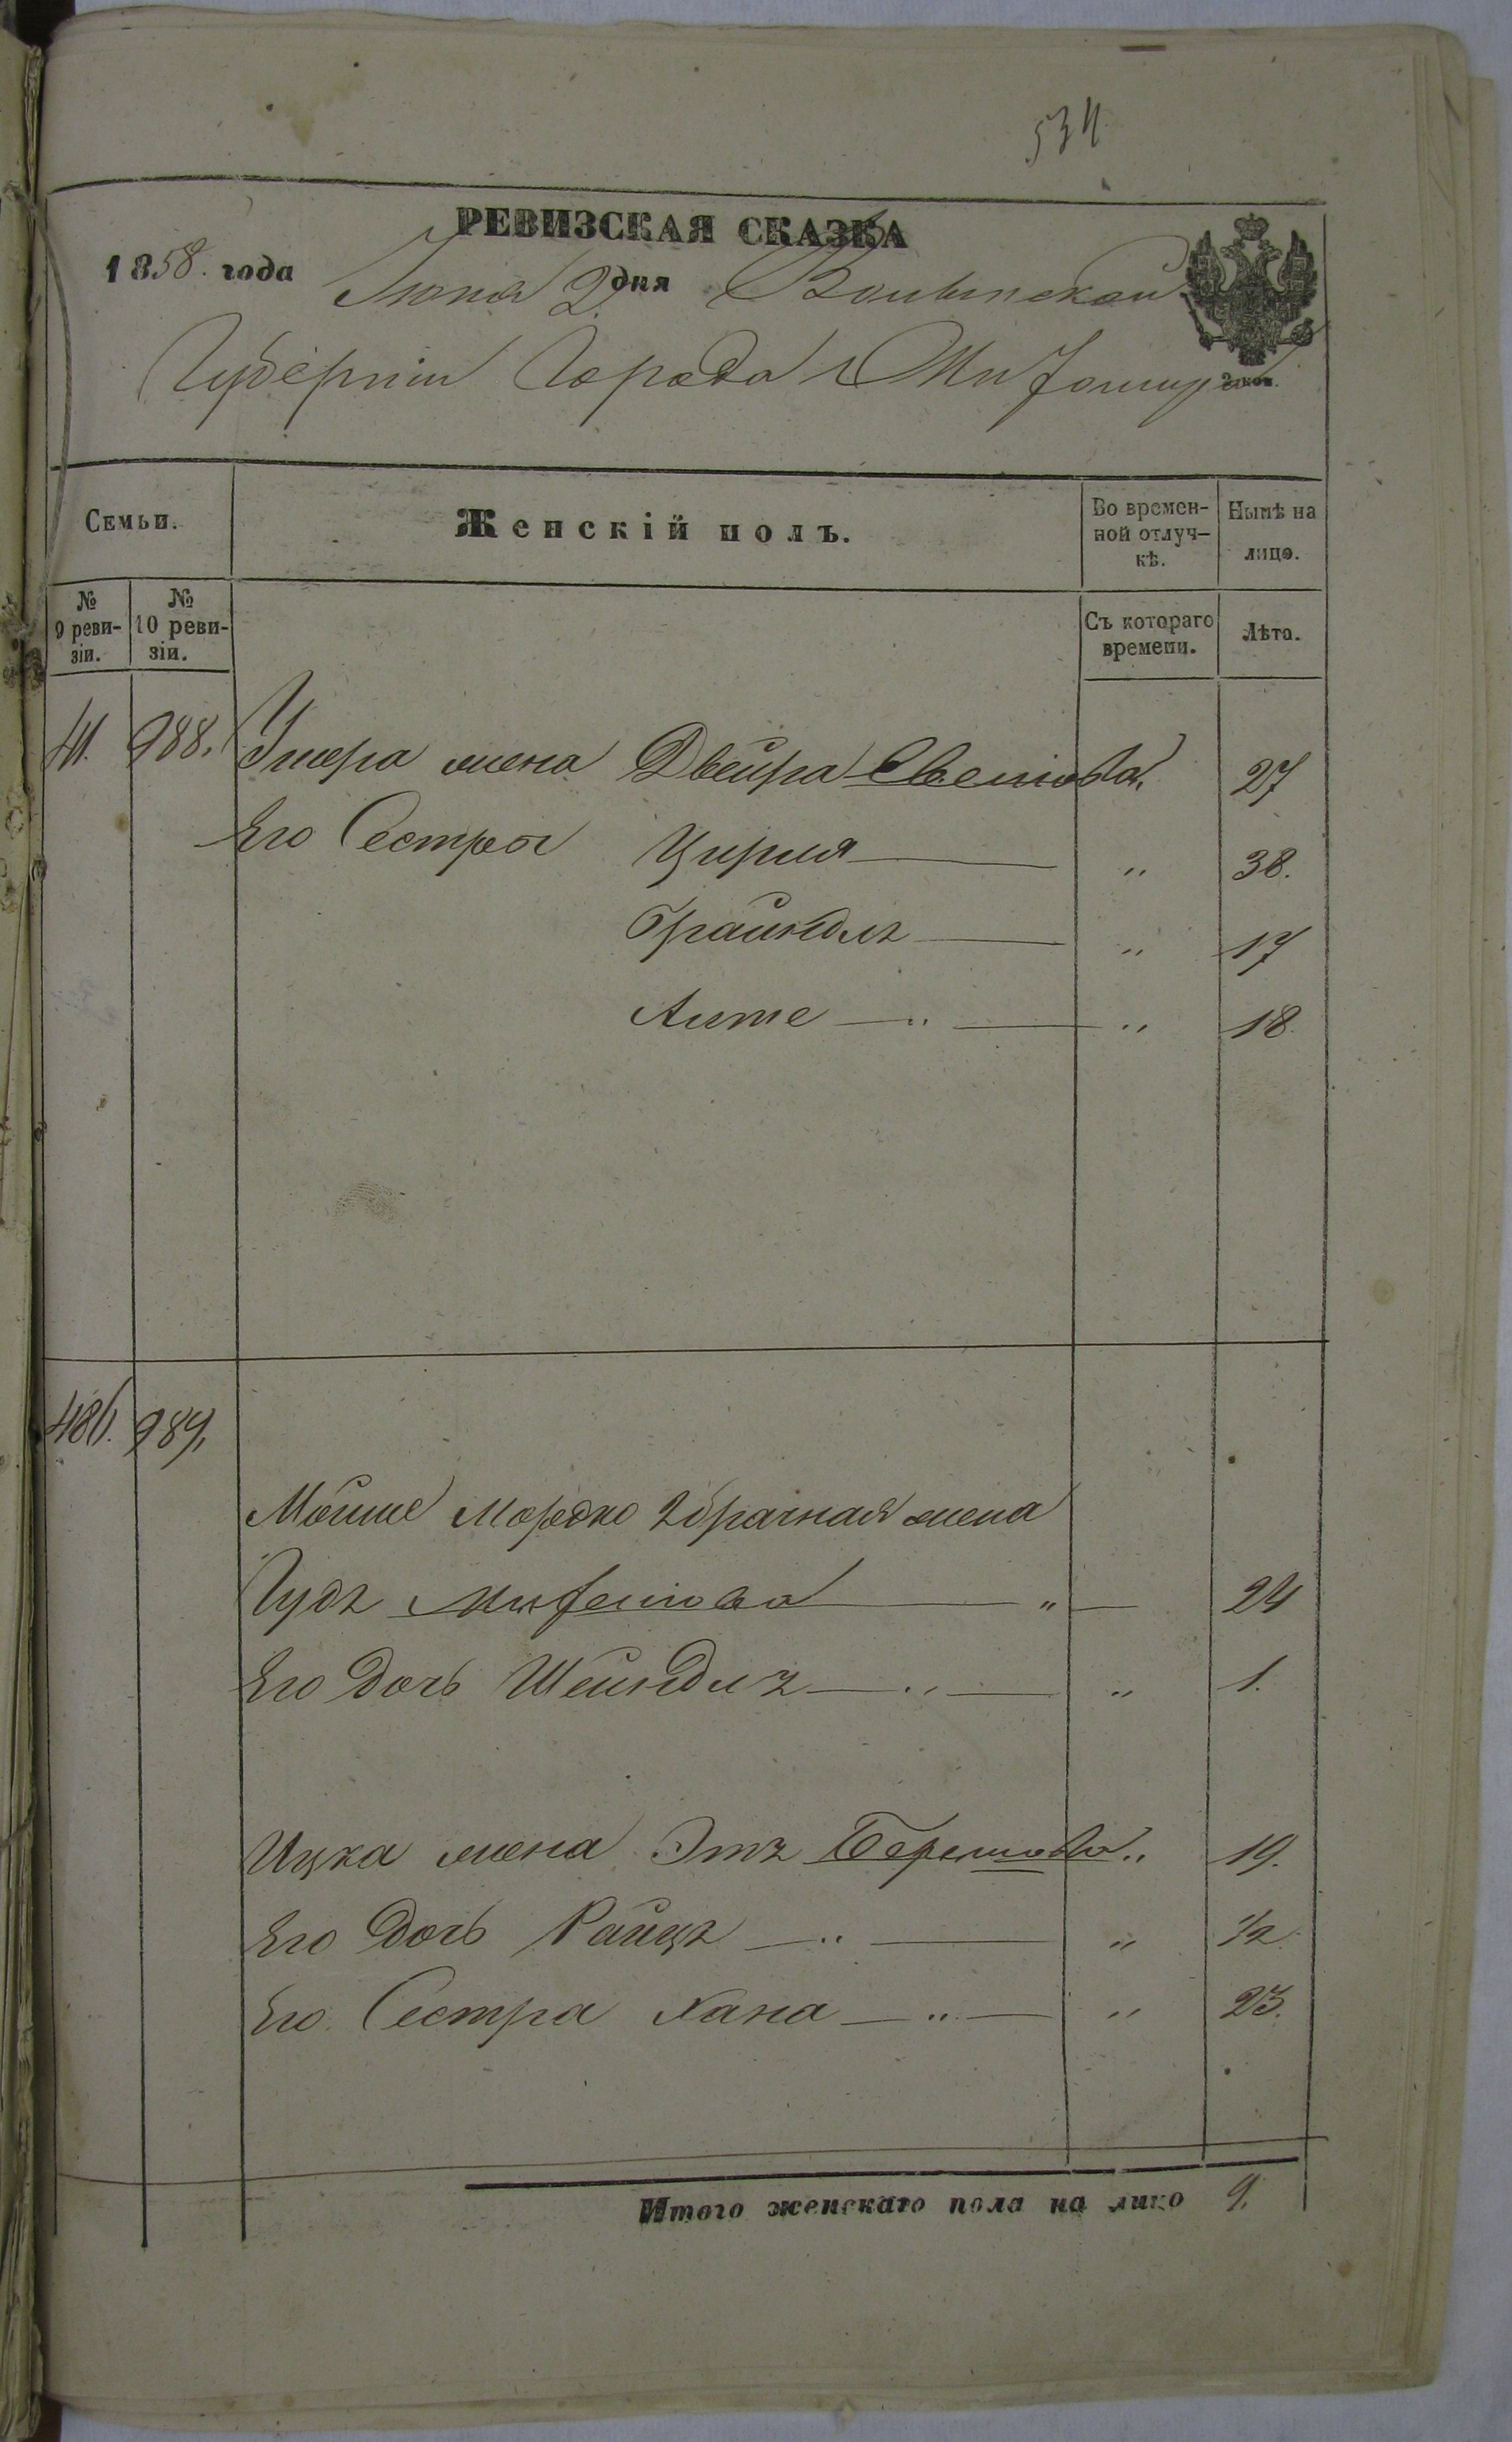 534
РЕВИЗСКАЯ СКАЗКА
1858. года Июня 2 дня Волынской
Губерніи Города Житомира
2 коп.
Семьи.
Женскій полъ.
Во времен-
ной отлуч-
кѣ.
Нынѣ на
лицо.
№
9 реви-
зіи.
№
10 реви-
зіи.
Съ котораго
времени.
Лѣта.
41. 988. жена Двейра 27
Его Сестры Цирля — " 38.
Брайндлъ — " 17
— " — " 18
486. 989.
Мойше Мордко 2 брачная жена
Гудъ — " — 24
Его дочь Шейндлъ — " — " 1.
Ицка жена Этъ Берешова " 19.
Его дочь Райцъ — " — " 1/2
Его Сестра Хана — " — " 23.
Итого женскаго пола на лицо 9.